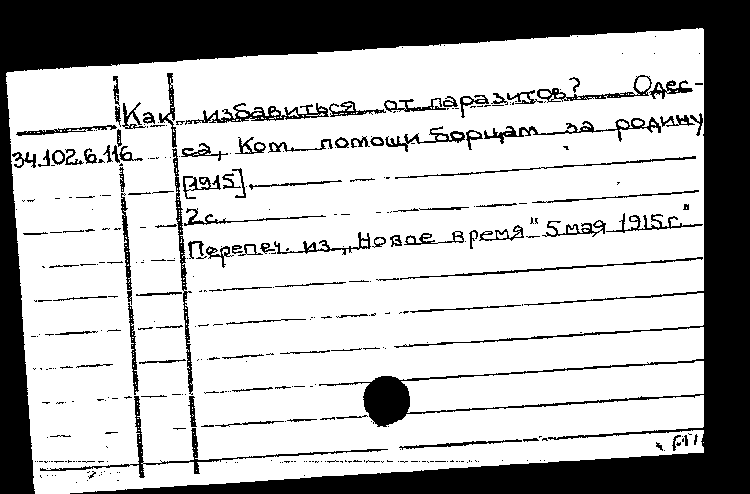 Как избавиться от паразитов? Одес-
34.102.6.116 са, Ком. помощи борцам за родину
[1915].
2с.
Перепеч. из „Новое время" 5 мая 1915 г."